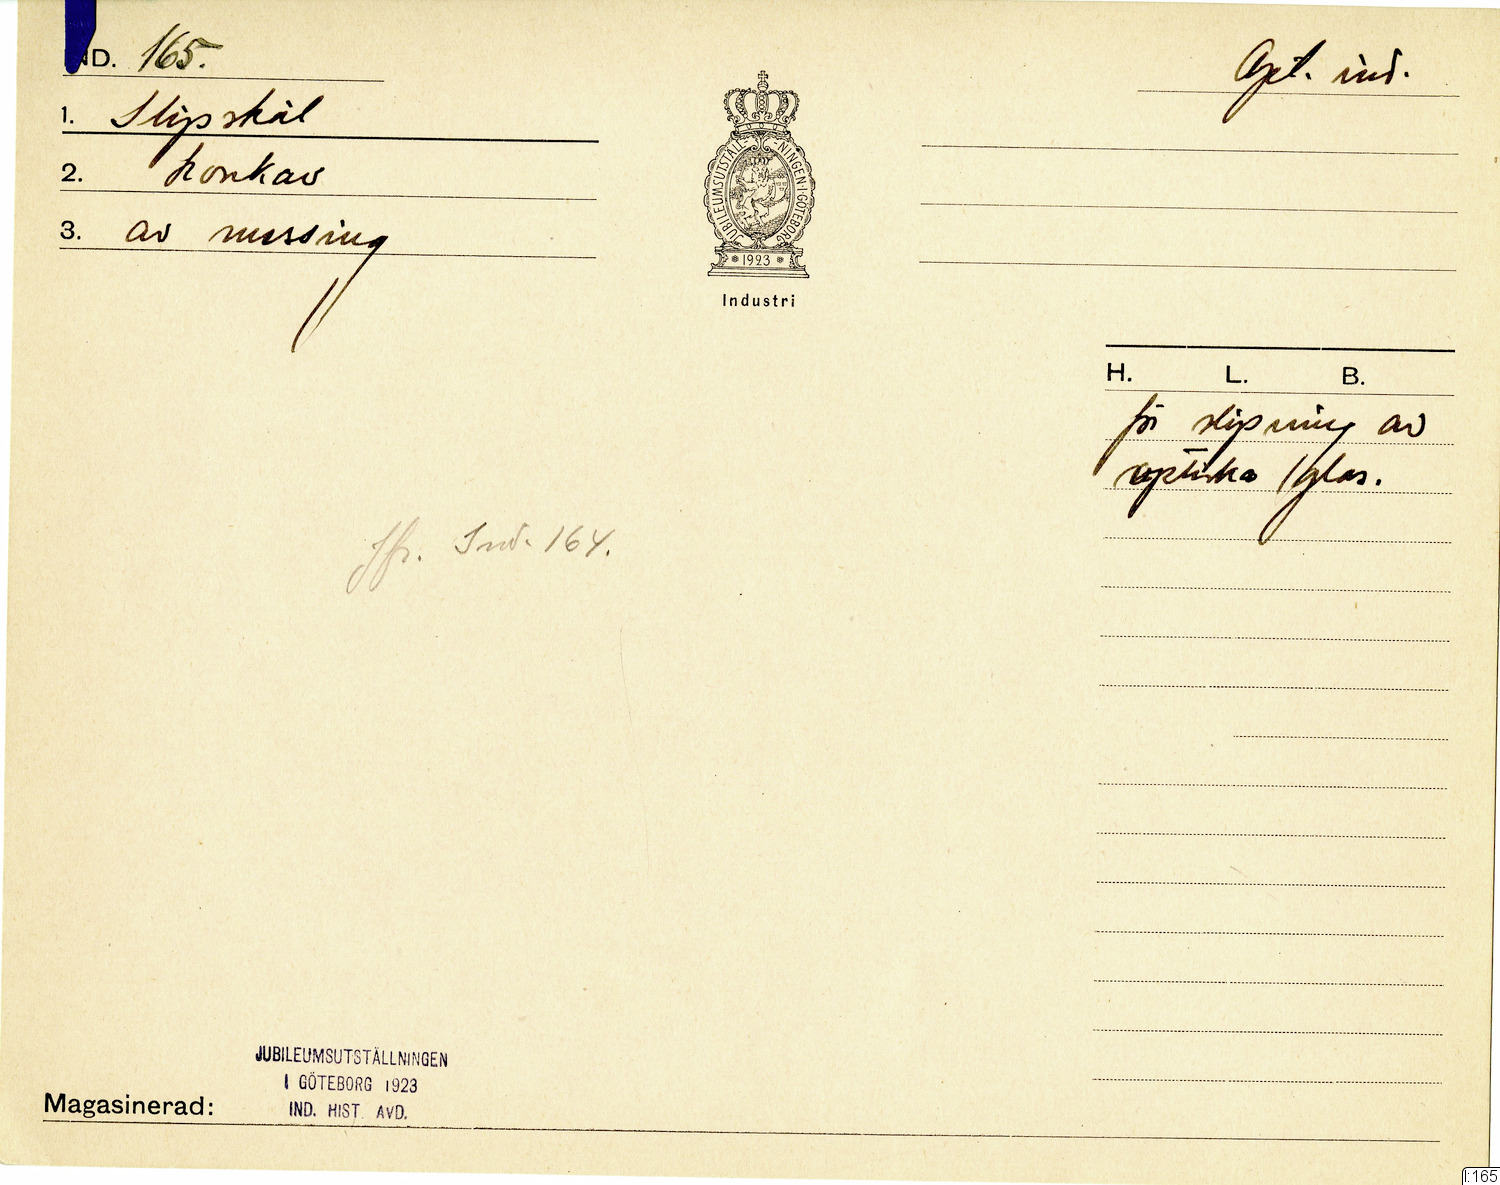 IND. 165.
Opt. ind.
1. Slipskål
2. konkav
3. av messing
JUBILEUMSUTSTÄLLNINGEN·I·GÖTEBORG
1923
Industri
H. L. B.
för slipning av
optiska glas.
Jfr. Ind. 164.
JUBILEUMSUTSTÄLLNINGEN
I GÖTEBORG 1923
IND. HIST. AVD.
Magasinerad:
I:165